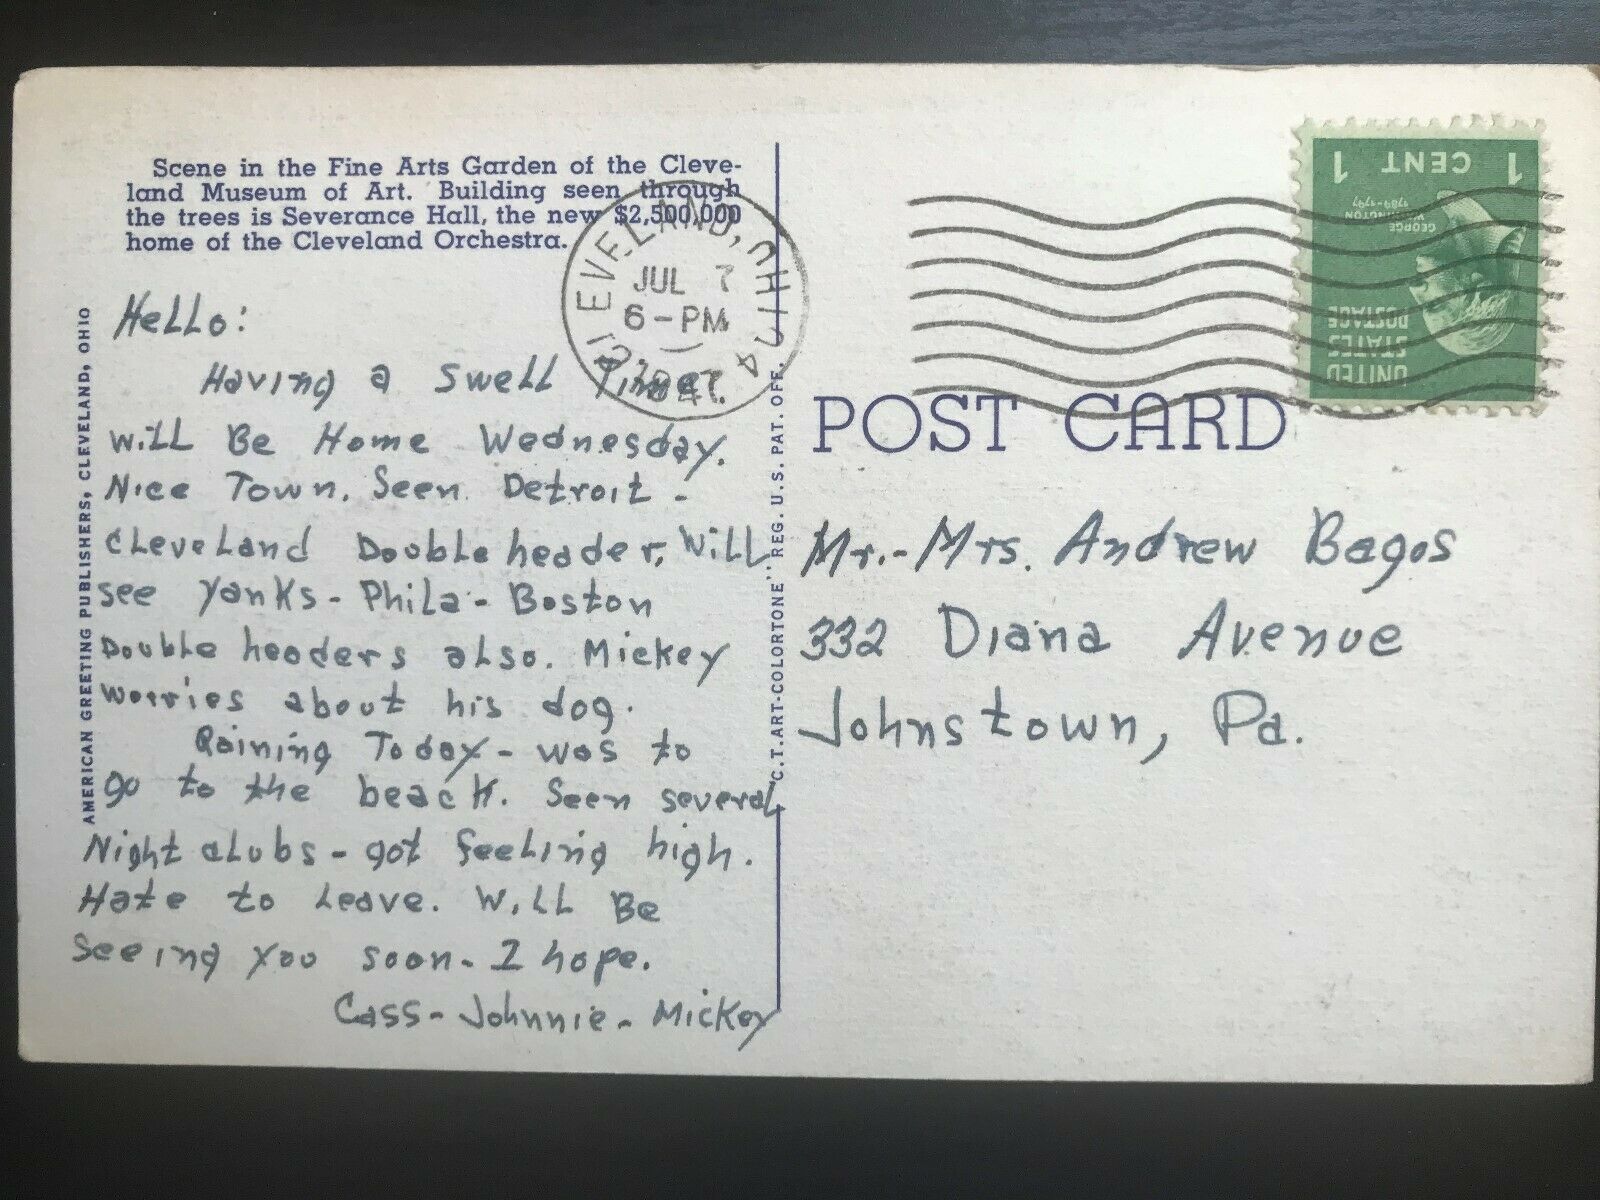 Scene in the Fine Arts Garden of the Cleve-
land Museum of Art. Building seen through
the trees is Severance Hall, the new $2,500,000
home of the Cleveland Orchestra.
CLEVELAND, OHIO 4
JUL 7
6-PM
1947
1 CENT 1
GEORGE
WASHINGTON
1789-1797
UNITED
STATES
POSTAGE
AMERICAN GREETING PUBLISHERS, CLEVELAND, OHIO
Hello:
Having a swell Time.
will Be Home Wednesday.
Nice Town. Seen Detroit -
Cleveland Doubleheader. Will
see Yanks - Phila - Boston
Double headers also. Mickey
worries about his dog.
Raining Today - was to
go to the beach. Seen several
Night clubs - got feeling high.
Hate to Leave. Will Be
seeing you soon - I hope.
Cass - Johnnie - Mickey
C.T. ART-COLORTONE" REG. U.S. PAT. OFF.
POST CARD
Mr. - Mrs. Andrew Bagos
332 Diana Avenue
Johnstown, Pa.